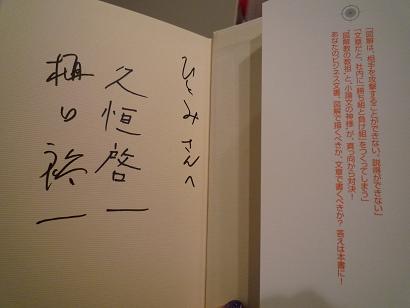 「図解は、相手を攻撃することができない、説得ができない」
「文章だと、社内に「勝ち組と負け組」をつくってしまう」
「図解教の教祖」と、「小論文の神様」が、真っ向から対決!
あなたのビジネス文書、図解で描くべきか、文章で書くべきか? 答えは本書に!
ひとみさんへ
久恒啓一
樋口裕一